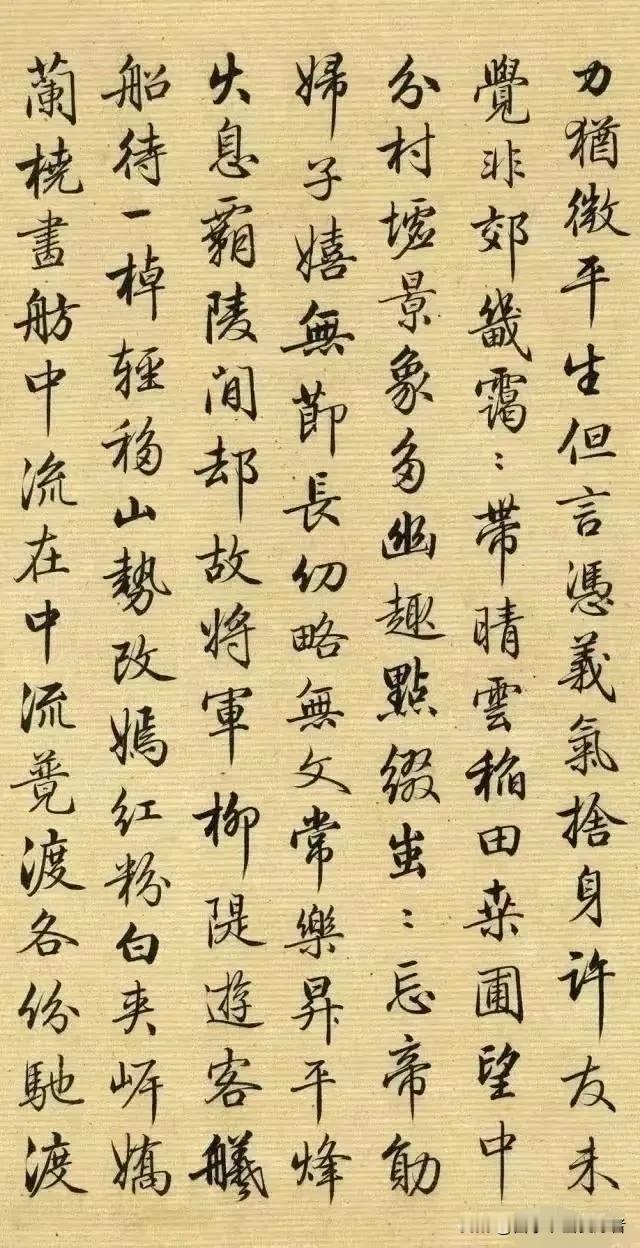 力猶微平生但言憑義氣捨身許友未
覺非郊畿靄〻帶晴雲稻田桑圃望中
分村墟景象多幽趣點綴蚩〻忘帝勛
婦子嬉無節長幼略無文常樂昇平烽
火息霸陵閒却故將軍柳隄遊客艤
船待一棹輕移山勢改嫣紅粉白夾岸嬌
蘭橈畫舫中流在中流競渡各份馳渡